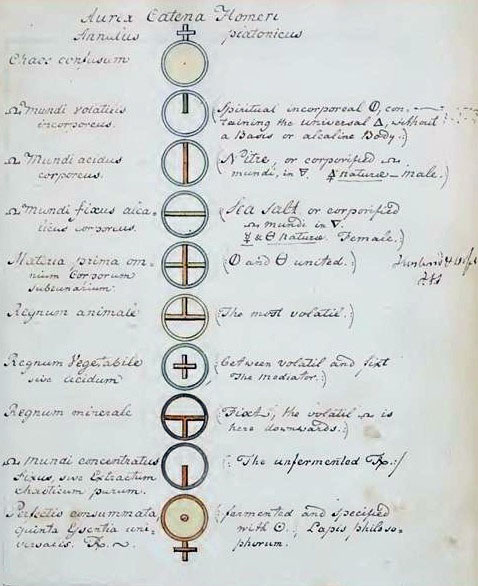 Aurea Catena Homeri
Annulus platonicus
Chaos confusum
♎ mundi volatilis
incorporeus.
(Spiritual incorporeal ⦶, con-
taining the universal △, without
a Basis or alcaline Body.)
♎ Mundi acidus
corporeus.
(Nitre, or corporified ♎
mundi, in ▽. naturæ — male.)
♎ mundi fixus alca-
licus corporeus.
(Sea Salt or corporified
♎ mundi in ▽.
& ⊖ naturæ Female.)
Materia prima om-
nium Corporum
sublunarium.
(⦶ and ⊖ united.)
Regnum animale
(The most volatil.)
Regnum Vegetabile
sive acidum
(between volatil and fixt
The mediator.)
Regnum minerale
(Fixt, the volatil ♎ is
here downwards.)
♎ mundi concentratus
fixus, sive Extractum
chaoticum purum.
(: The unfermented :/
Perfectio consummata
quinta Essentia uni-
versalis.
(fermented and specified
with ☉. Lapis philoso-
phorum.